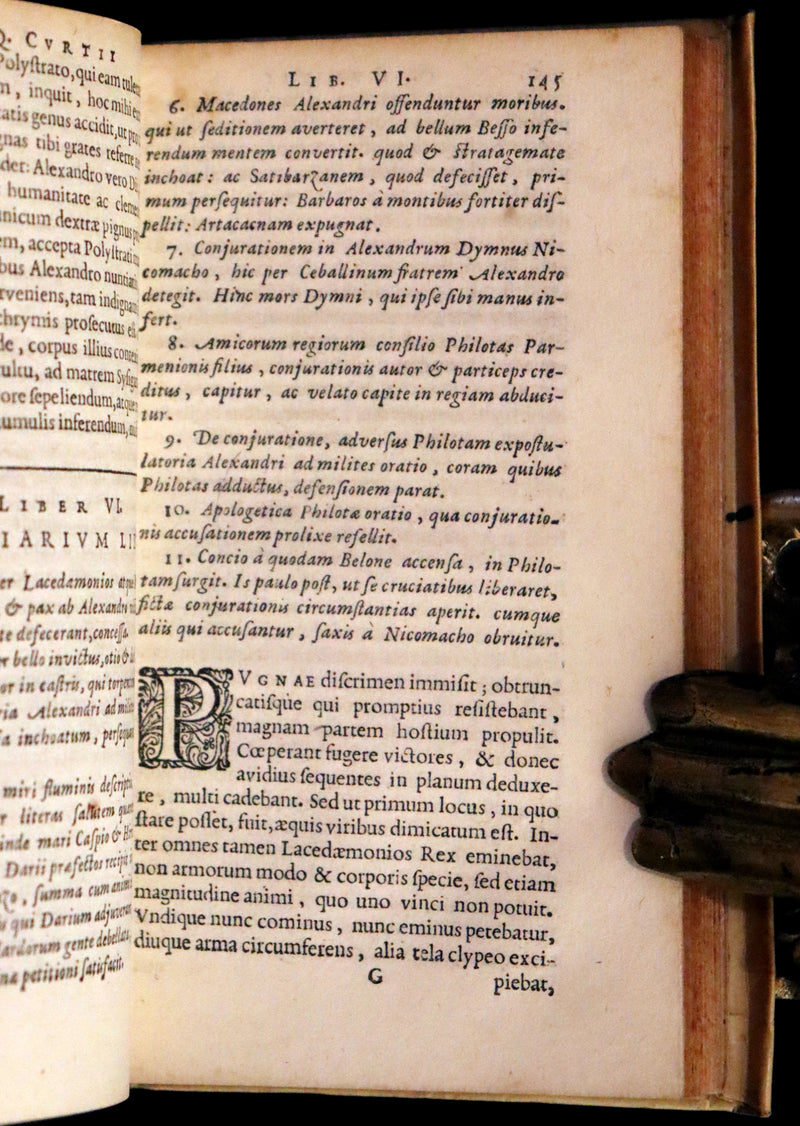 Q. CVRTII
Polystrato, qui eam
inquit, hoc mihi
genus accidit, ut
tibi grates referre
Alexandro vero
humanitate ac
dextræ pignus
accepta Polystrati
Alexandro
tam
prosecutus
corpus illius
ad matrem
sepeliendum,
inferendum,
LIBER VI.
Lacedæmonios
& pax ab Alexandro
defecerant, concessa.
bello invictus, otio &
in castris, qui
Alexandri ad
inchoatum,
miri fluminis
literas
mari Caspio &
Darii præfectos
summa cum
qui Darium
gente
petitioni satisfacit.
LIB. VI. 145
6. Macedones Alexandri offenduntur moribus.
qui ut ſeditionem averteret, ad bellum Beſſo infe-
rendum mentem convertit. quod & ſtratagemate
inchoat: ac Satibarzanem, quod defeciſſet, pri-
mum perſequitur: Barbaros à montibus fortiter diſ-
pellit: Artacacnam expugnat.
7. Conjurationem in Alexandrum Dymnus Ni-
comacho, hic per Ceballinum fratrem Alexandro
detegit. Hinc mors Dymni, qui ipſe ſibi manus in-
fert.
8. Amicorum regiorum conſilio Philotas Par-
menionis filius, conjurationis autor & particeps cre-
ditus, capitur, ac velato capite in regiam abduci-
tur.
9. De conjuratione, adverſus Philotam expoſtu-
latoria Alexandri ad milites oratio, coram quibus
Philotas adductus, defenſionem parat.
10. Apologetica Philotæ oratio, qua conjuratio-
nis accuſationem prolixe refellit.
11. Concio à quodam Belone accenſa, in Philo-
tam ſurgit. Is paulo poſt, ut ſe cruciatibus liberaret,
fictæ conjurationis circumſtantias aperit. cumque
aliis qui accuſantur, ſaxis à Nicomacho obruitur.
PVGNAE diſcrimen immiſit; obtrun-
catiſque qui promptius reſiſtebant,
magnam partem hoſtium propulit.
Cœperant fugere victores, & donec
avidius ſequentes in planum deduxe-
re, multi cadebant. Sed ut primum locus, in quo
ſtare poſſet, fuit, æquis viribus dimicatum eſt. In-
ter omnes tamen Lacedæmonios Rex eminebat,
non armorum modo & corporis ſpecie, ſed etiam
magnitudine animi, quo uno vinci non potuit.
Vndique nunc cominus, nunc eminus petebatur,
diuque arma circumferens, alia tela clypeo exci-
G piebat,